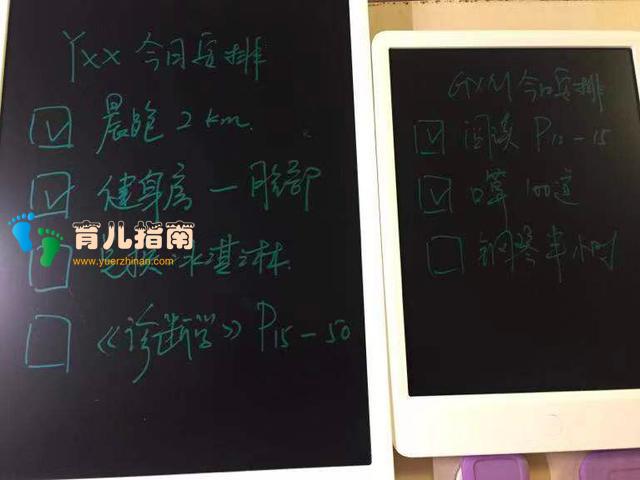 Yxx 今日安排
晨跑 2 km.
健身房 — 胸部
兑换冰淇淋.
《诊断学》 P15 — 50
GXM 今日安排
阅读 P12 — 15
口算 100道
钢琴半小时
育儿指南
www.yuerzhinan.com